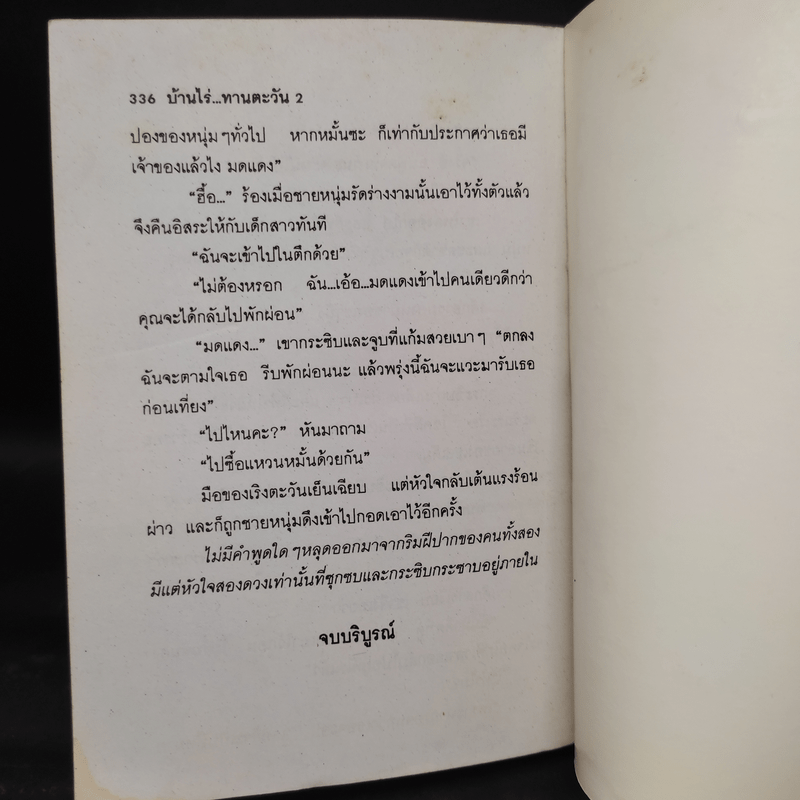 336 บ้านไร่...ทานตะวัน 2
ปองของหนุ่มๆทั่วไป หากหมั้นซะ ก็เท่ากับประกาศว่าเธอมี
เจ้าของแล้วไง มดแดง”
“ฮื้อ...” ร้องเมื่อชายหนุ่มรัดร่างงามนั้นเอาไว้ทั้งตัวแล้ว
จึงคืนอิสระให้กับเด็กสาวทันที
“ฉันจะเข้าไปในตึกด้วย”
“ไม่ต้องหรอก ฉัน...เอ้อ...มดแดงเข้าไปคนเดียวดีกว่า
คุณจะได้กลับไปพักผ่อน”
“มดแดง...” เขากระซิบและจูบที่แก้มสวยเบาๆ “ตกลง
ฉันจะตามใจเธอ รีบพักผ่อนนะ แล้วพรุ่งนี้ฉันจะแวะมารับเธอ
ก่อนเที่ยง”
“ไปไหนคะ?” หันมาถาม
“ไปซื้อแหวนหมั้นด้วยกัน”
มือของเริงตะวันเย็นเฉียบ แต่หัวใจกลับเต้นแรงร้อน
ผ่าว และก็ถูกชายหนุ่มดึงเข้าไปกอดเอาไว้อีกครั้ง
ไม่มีคำพูดใดๆหลุดออกมาจากริมฝีปากของคนทั้งสอง
มีแต่หัวใจสองดวงเท่านั้นที่ซุกซบและกระซิบกระซาบอยู่ภายใน
จบบริบูรณ์